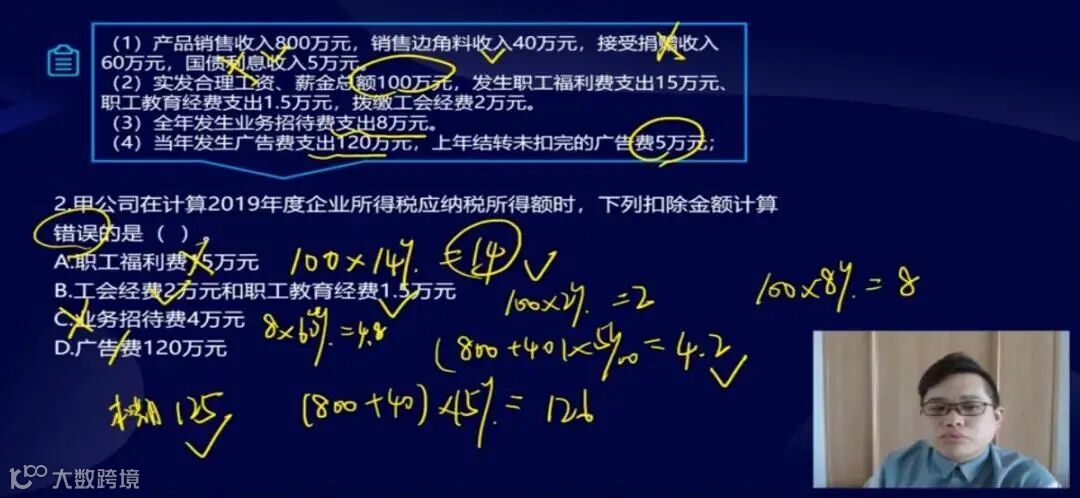 （1）产品销售收入800万元，销售边角料收入40万元，接受捐赠收入
60万元，国债利息收入5万元。
（2）实发合理工资、薪金总额100万元，发生职工福利费支出15万元、
职工教育经费支出1.5万元，拨缴工会经费2万元。
（3）全年发生业务招待费支出8万元。
（4）当年发生广告费支出120万元，上年结转未扣完的广告费5万元；
2.甲公司在计算2019年度企业所得税应纳税所得额时，下列扣除金额计算
错误的是（ ）。
A.职工福利费15万元
100×14%=14
B.工会经费2万元和职工教育经费1.5万元
100×2%=2
100×8%=8
C.业务招待费4万元
8×60%=4.8
(800+40)×5‰=4.2
D.广告费120万元
125
(800+40)×15%=126
大数跨境